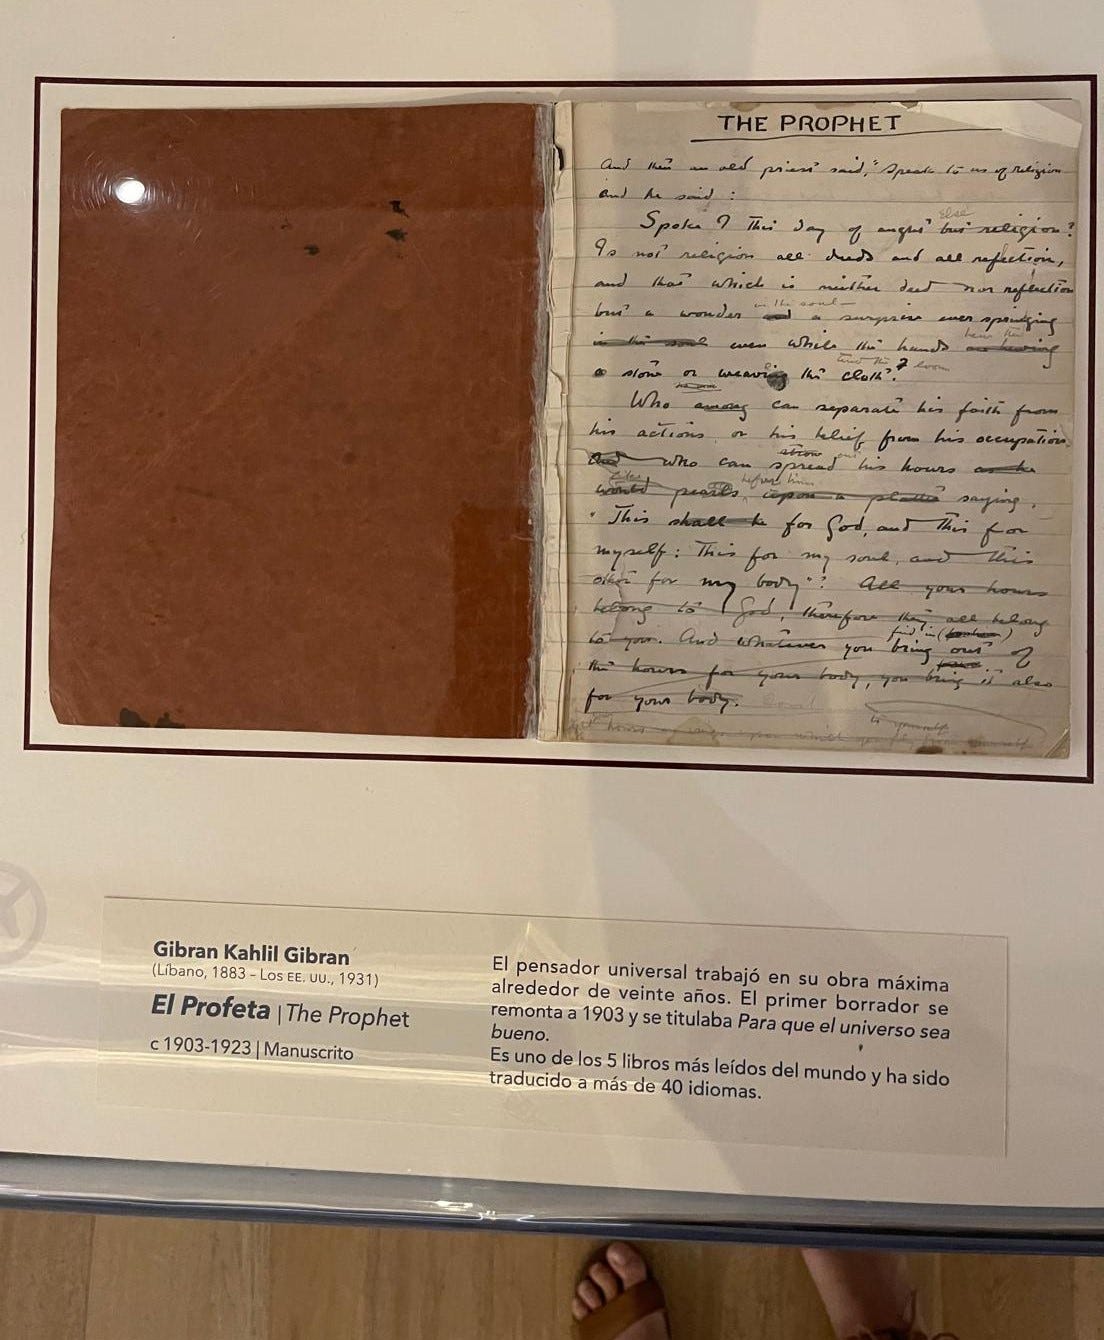 THE PROPHET
And then an old priest said, "Speak to us of religion
and he said :
else
Spoke I this day of aught but religion?
Is not religion all deeds and all reflection,
and that which is neither deed nor reflection
in the soul
but a wonder and a surprise ever springing
hew the
in the soul even while the hands are hewing
tend the loom
a stone or weaving the cloth?
Who among can separate his faith from
his actions, or his belief from his occupation.
And who can spread his hours as he
before him
would pearls, upon a platter saying,
"This shall be for God, and this for
myself : This for my soul, and this
other for my body"? All your hours
belong to God, therefore they all belong
find in
to you. And whatever you bring out of
the hours for your body, you bring it also
for your body.
to yourself
Gibran Kahlil Gibran
(Líbano, 1883 - Los EE. UU., 1931)
El Profeta | The Prophet
c 1903-1923 | Manuscrito
El pensador universal trabajó en su obra máxima
alrededor de veinte años. El primer borrador se
remonta a 1903 y se titulaba Para que el universo sea
bueno.
Es uno de los 5 libros más leídos del mundo y ha sido
traducido a más de 40 idiomas.